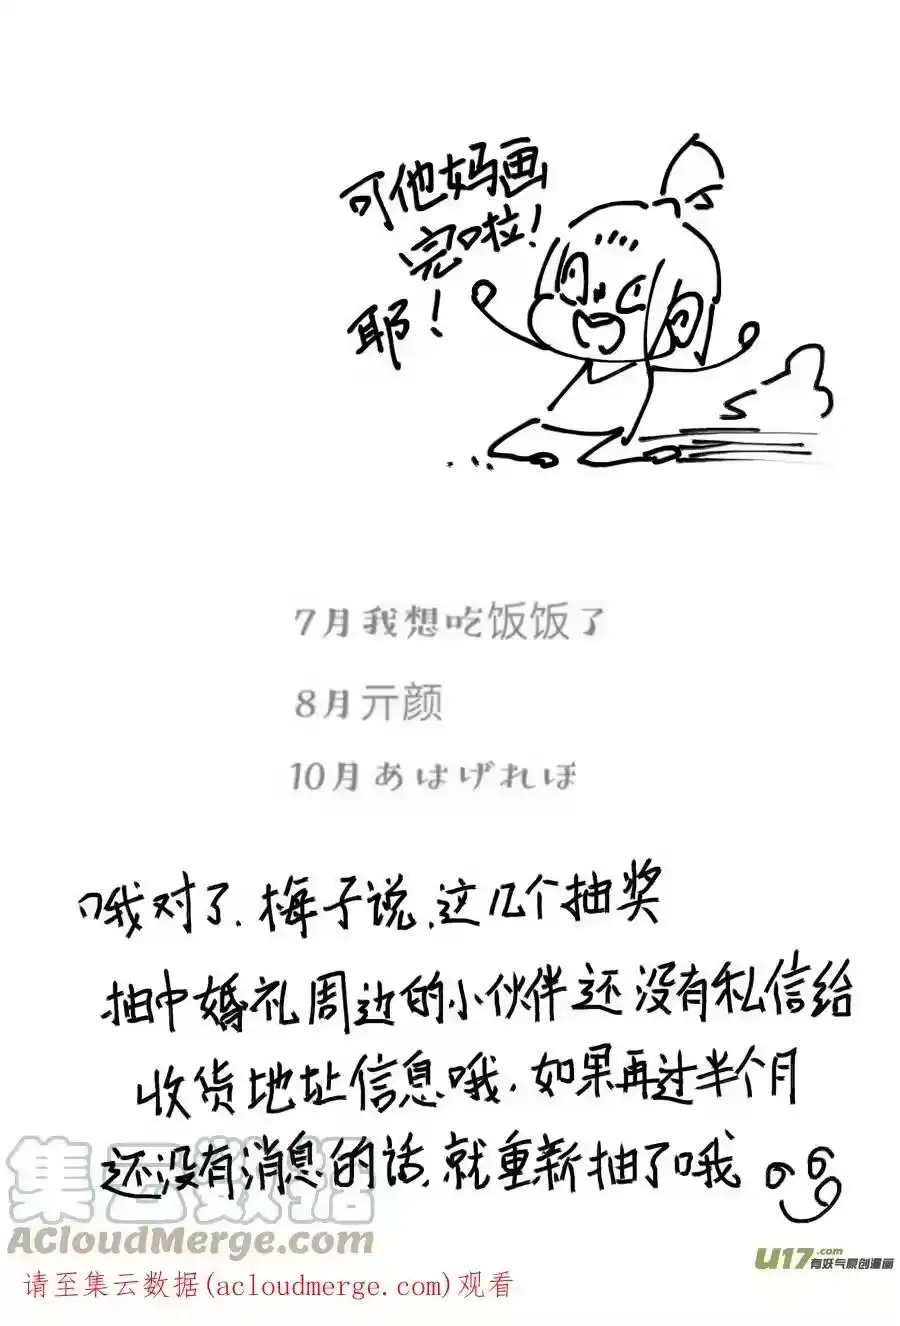 可他妈画
完啦!
耶!
7月我想吃饭饭了
8月亓颜
10月あはげれぼ
哦对了.梅子说.这几个抽奖
抽中婚礼周边的小伙伴还没有私信给
收货地址信息哦.如果再过半个月
还没有消息的话.就重新抽了哦
集云数据
AcloudMerge.com
请至集云数据(acloudmerge.com)观看
U17.com
有妖气原创漫画